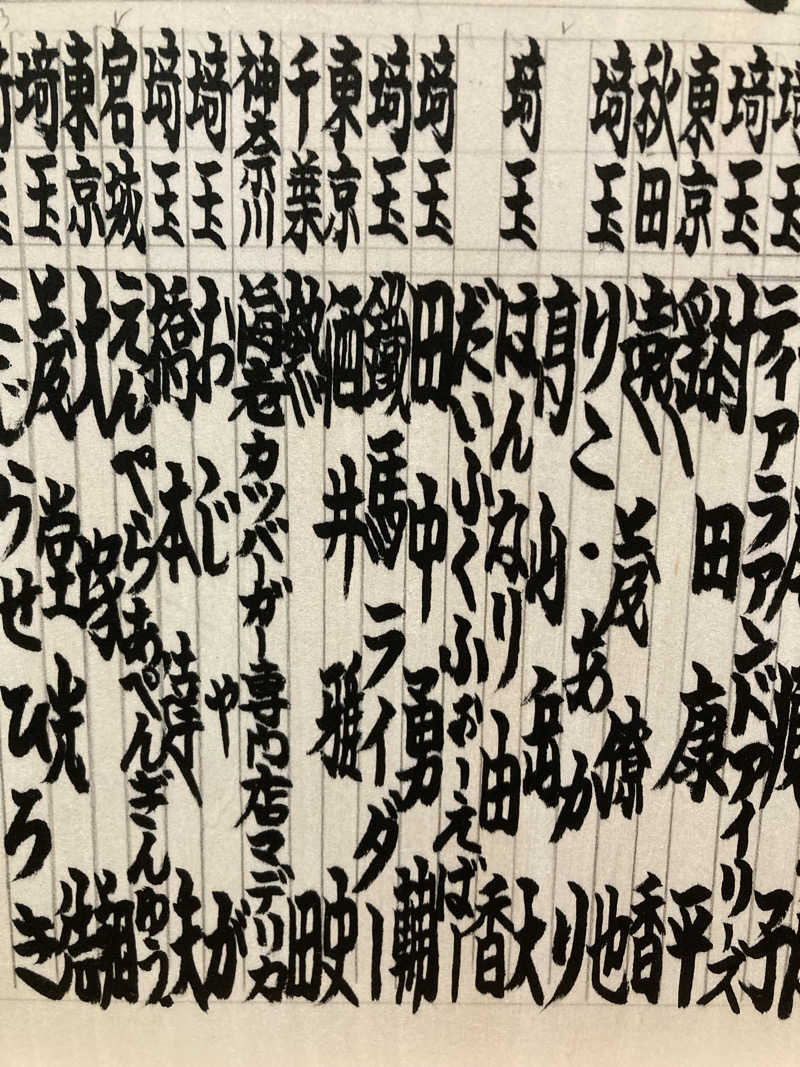 埼玉
埼玉 ティアラアンドアイリーズ
東京 田康平
秋田 香
埼玉 僚也
りこ・あかり
高山 音大
埼玉 はんなり由香
だいふくふぉーえばー
埼玉 田中勇輔
埼玉 鐵馬ライダー
東京 酒井雅史
千葉 熱田
神奈川 海老カツバーガー専門店マデリカ
埼玉 おじやが
埼玉 橋本 夫
宮城 えんぺらあぺんぎんゆう
東京 大塚翔
埼玉 堂光
らせひろき